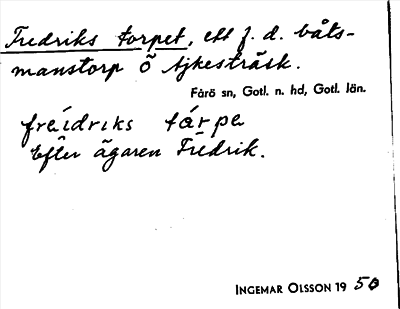 Fredriks torpet, ett f. d. båts-
manstorp Ö Ajkesträsk.
Fårö sn, Gotl. n. hd, Gotl. län.
fréidriks tárpe
Efter ägaren Fredrik.
INGEMAR OLSSON 19 50